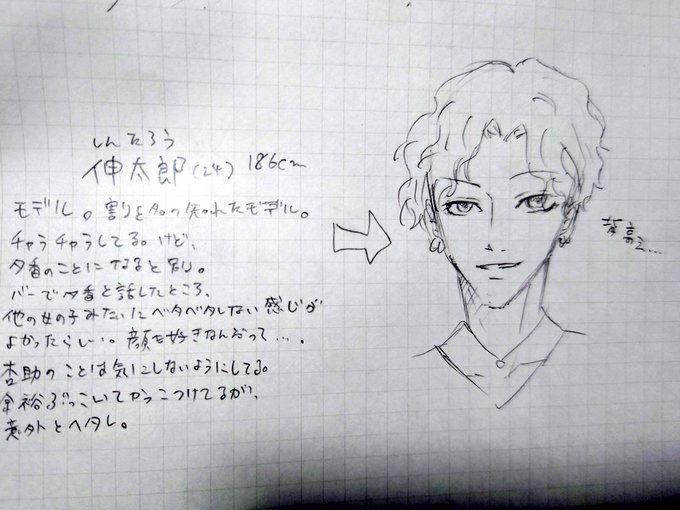 しんたろう
伸太郎(24) 186cm
モデル。割と名の知れたモデル。
チャラチャラしてる。けど、
夕香のことになると別。
バーで夕香と話したところ、
他の女の子みたいにベタベタしない感じが
よかったらしい。顔も好きなんだって…．
杏助のことは気にしないようにしてる。
余裕ぶっこいてかっこつけてるが、
意外とヘタレ。
背高っ…